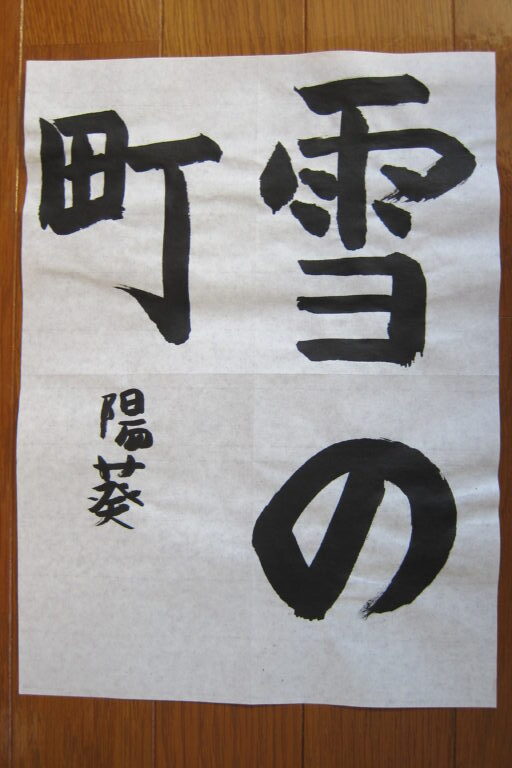 雪の
町
陽葵